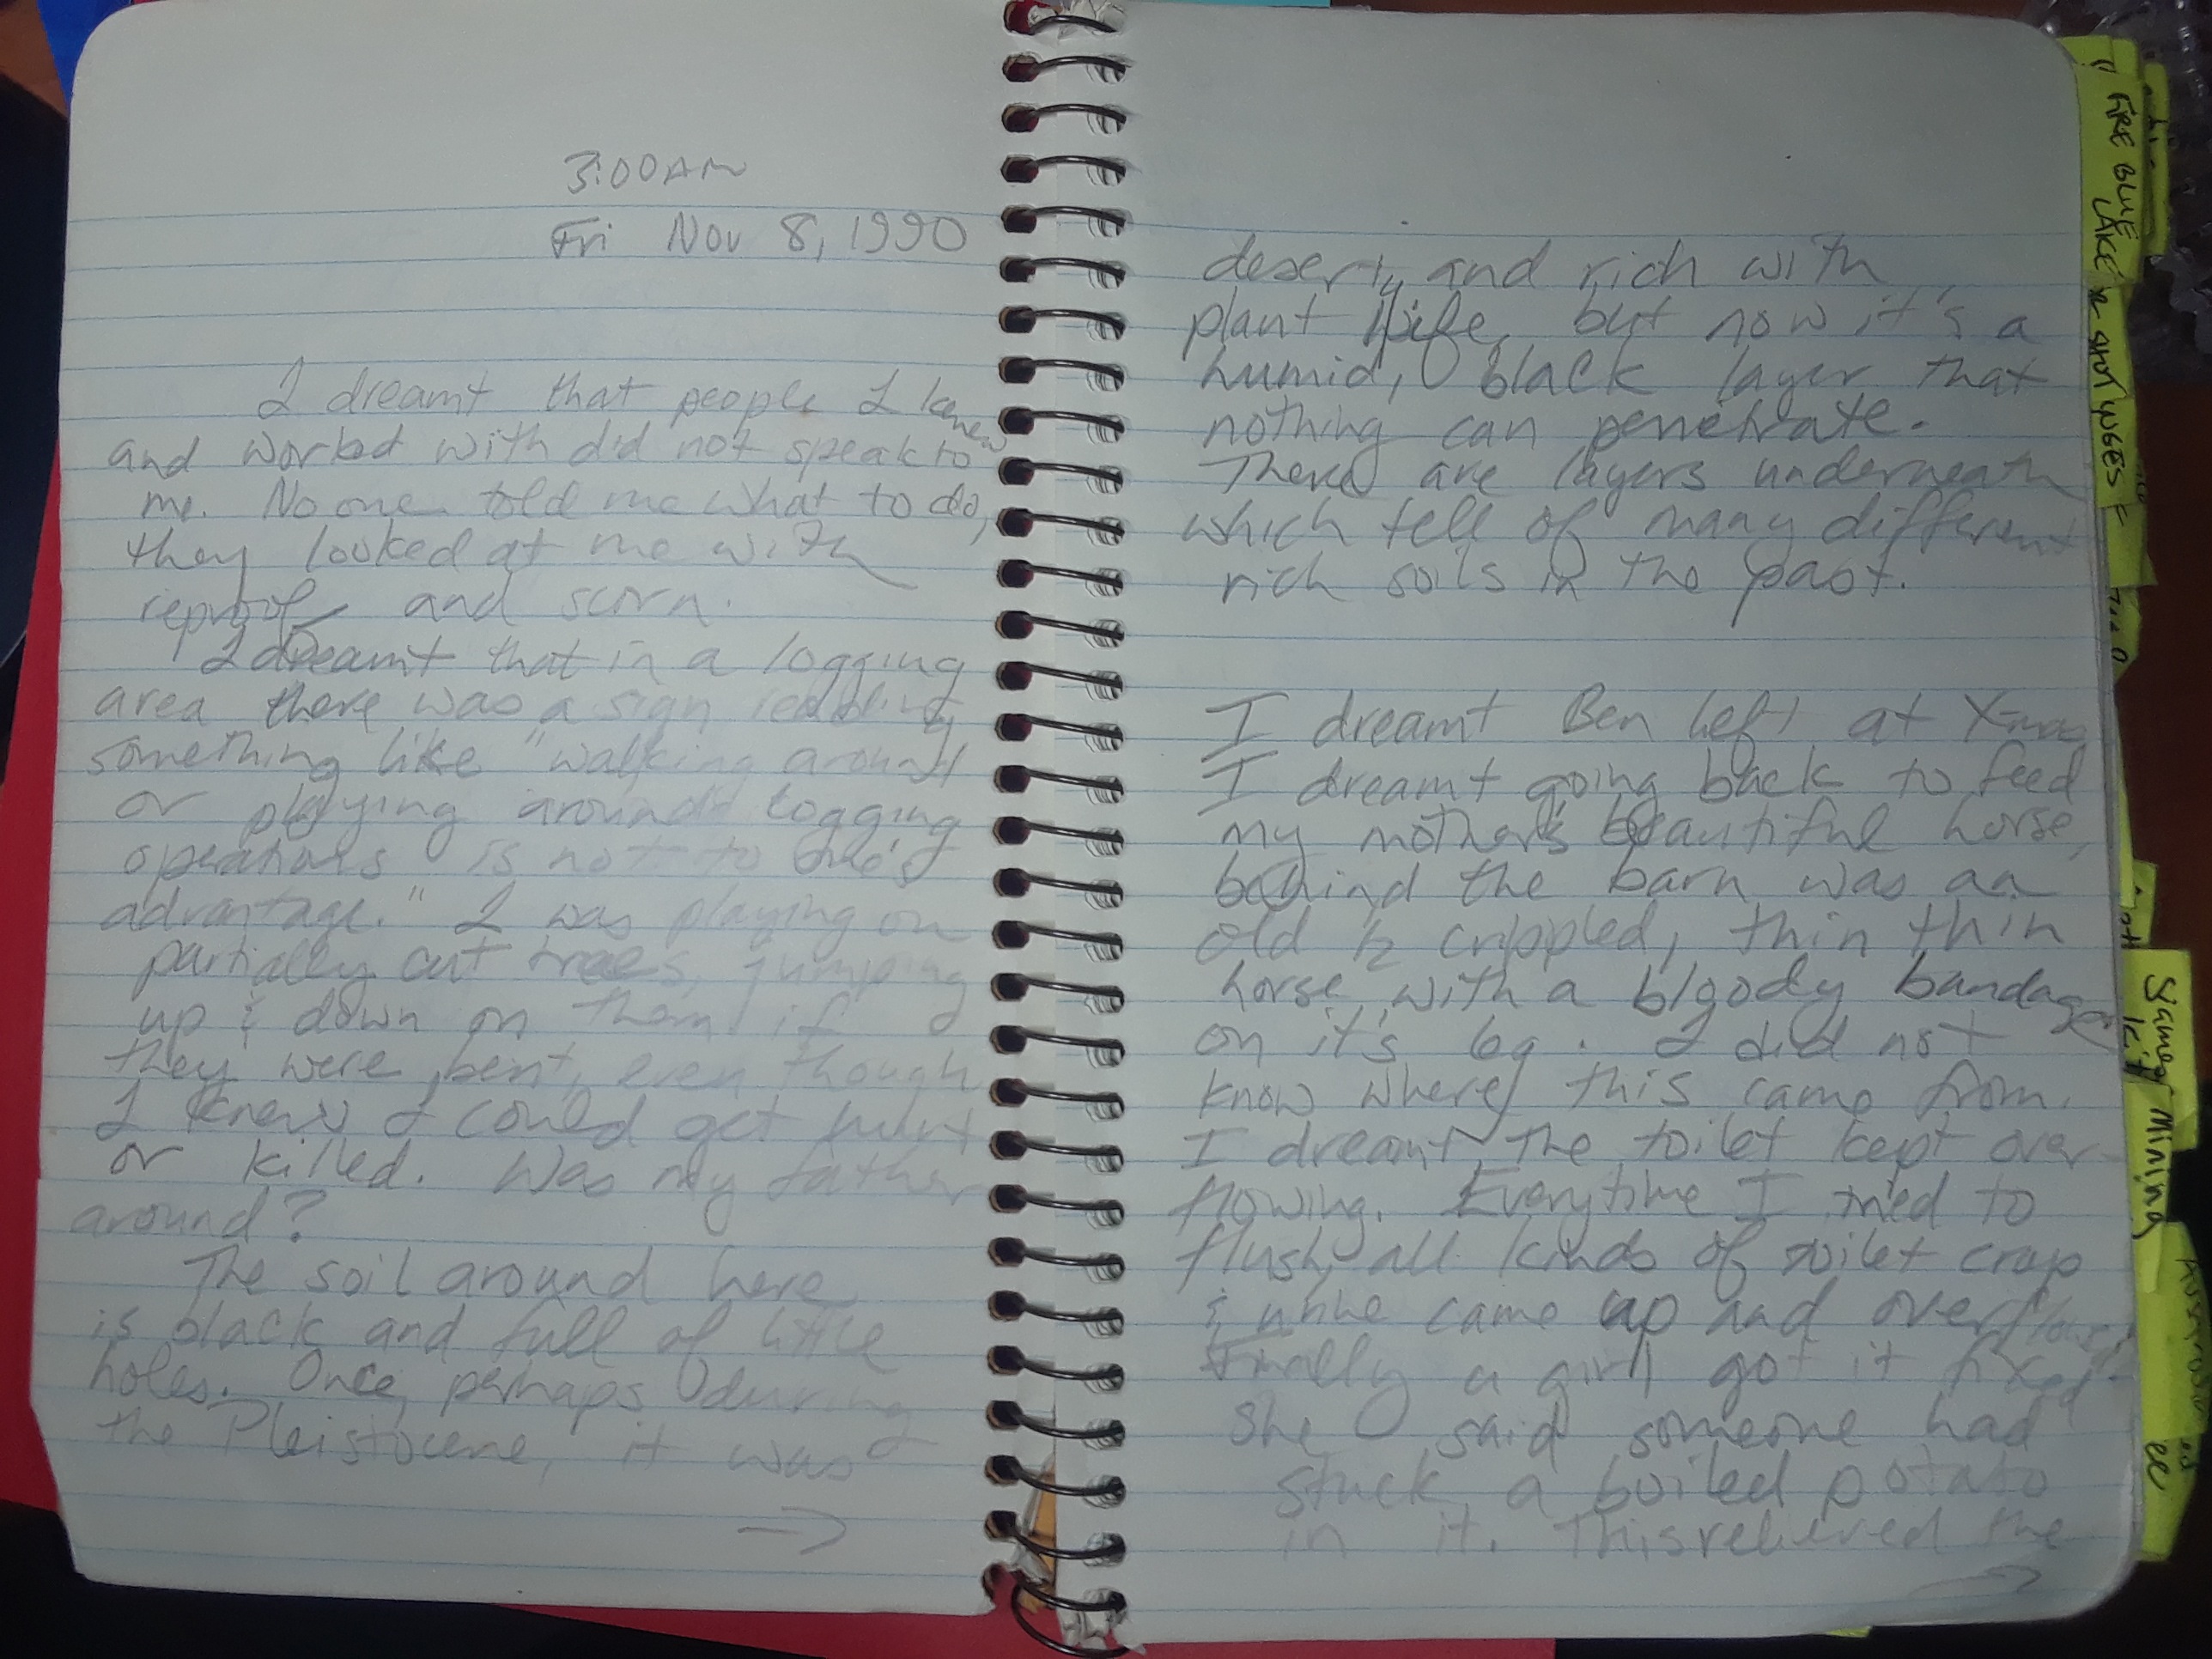 3:00AM
Fri Nov 8, 1990
I dreamt that people I knew
and worked with did not speak to
me. No one told me what to do,
they looked at me with
reproof and scorn.
I dreamt that in a logging
area there was a sign reading
something like "walking around
or playing around logging
operations is not to one's
advantage." I was playing on
partially cut trees, jumping
up & down on them if
they were bent, even though
I knew I could get hurt
or killed. Was my father
around?
The soil around here
is black and full of little
holes. Once, perhaps during
the Pleistocene, it was
→
desert, and rich with
plant life, but now it's a
humid, black layer that
nothing can penetrate.
There are layers underneath
which tell of many different
rich soils in the past.
I dreamt Ben left at X-mas
I dreamt going back to feed
my mother's beautiful horse,
behind the barn was an
old ½ crippled, thin thin
horse, with a bloody bandage
on it's leg. I did not
know where this came from.
I dreamt the toilet kept over-
flowing. Everytime I tried to
flush, all kinds of toilet crap
& urine came up and overflowed.
Finally a girl got it fixed.
She said someone had
stuck a boiled potato
in it. This relieved the
→
FIRE BLUE
LAKE
SHOT
Yamoy Mining
Kit